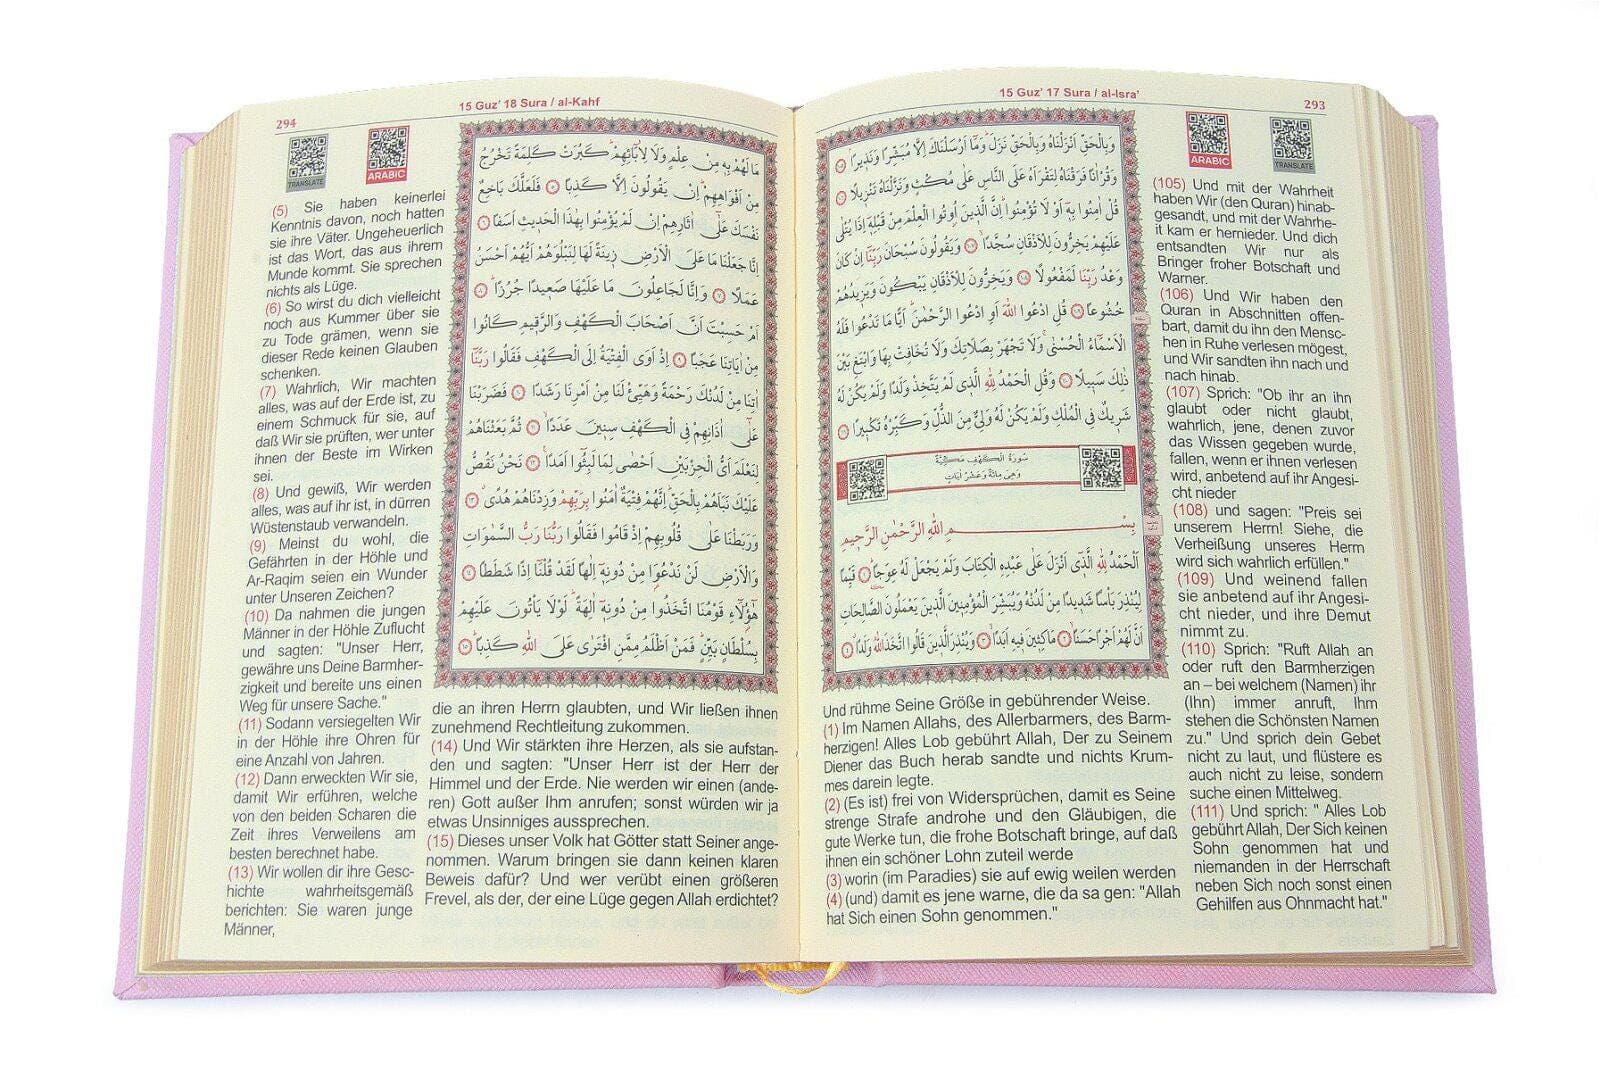 15 Guz' 17 Sura / al-Isra'
293
ARABIC
TRANSLATE
وَبِالْحَقِّ اَنْزَلْنَاهُ وَبِالْحَقِّ نَزَلَ وَمَٓا اَرْسَلْنَاكَ اِلَّا مُبَشِّرًا وَنَذ۪يرًا ١٠٥
وَقُرْاٰنًا فَرَقْنَاهُ لِتَقْرَاَهُ عَلَى النَّاسِ عَلٰى مُكْثٍ وَنَزَّلْنَاهُ تَنْز۪يلًا ١٠٦
قُلْ اٰمِنُوا بِه۪ٓ اَوْ لَا تُؤْمِنُوا اِنَّ الَّذ۪ينَ اُوتُوا الْعِلْمَ مِنْ قَبْلِه۪ٓ اِذَا يُتْلٰى
عَلَيْهِمْ يَخِرُّونَ لِلْاَذْقَانِ سُجَّدًا ١٠٧ وَيَقُولُونَ سُبْحَانَ رَبِّنَٓا اِنْ كَانَ
وَعْدُ رَبِّنَا لَمَفْعُولًا ١٠٨ وَيَخِرُّونَ لِلْاَذْقَانِ يَبْكُونَ وَيَز۪يدُهُمْ
خُشُوعًا ١٠٩ قُلِ ادْعُوا اللّٰهَ اَوِ ادْعُوا الرَّحْمٰنَ اَيًّا مَا تَدْعُوا فَلَهُ
الْاَسْمَٓاءُ الْحُسْنٰى وَلَا تَجْهَرْ بِصَلَاتِكَ وَلَا تُخَافِتْ بِهَا وَابْتَغِ بَيْنَ
ذٰلِكَ سَب۪يلًا ١١٠ وَقُلِ الْحَمْدُ لِلّٰهِ الَّذ۪ي لَمْ يَتَّخِذْ وَلَدًا وَلَمْ يَكُنْ لَهُ
شَر۪يكٌ فِي الْمُلْكِ وَلَمْ يَكُنْ لَهُ وَلِيٌّ مِنَ الذُّلِّ وَكَبِّرْهُ تَكْب۪يرًا ١١١
سُورَةُ الْكَهْفِ مَكِّيَّةٌ
وَهِيَ مِائَةٌ وَعَشْرُ اٰيَاتٍ
بِسْمِ اللّٰهِ الرَّحْمٰنِ الرَّح۪يمِ
اَلْحَمْدُ لِلّٰهِ الَّذ۪ٓي اَنْزَلَ عَلٰى عَبْدِهِ الْكِتَابَ وَلَمْ يَجْعَلْ لَهُ عِوَجًا ١ قَيِّمًا
لِيُنْذِرَ بَاْسًا شَد۪يدًا مِنْ لَدُنْهُ وَيُبَشِّرَ الْمُؤْمِن۪ينَ الَّذ۪ينَ يَعْمَلُونَ الصَّالِحَاتِ
اَنَّ لَهُمْ اَجْرًا حَسَنًا ٢ مَاكِث۪ينَ ف۪يهِ اَبَدًا ٣ وَيُنْذِرَ الَّذ۪ينَ قَالُوا اتَّخَذَ اللّٰهُ وَلَدًا ٤
(105) Und mit der Wahrheit
haben Wir (den Quran) hinab-
gesandt, und mit der Wahrhe-
it kam er hernieder. Und dich
entsandten Wir nur als
Bringer froher Botschaft und
Warner.
(106) Und Wir haben den
Quran in Abschnitten offen-
bart, damit du ihn den Mensc-
hen in Ruhe verlesen mögest,
und Wir sandten ihn nach und
nach hinab.
(107) Sprich: "Ob ihr an ihn
glaubt oder nicht glaubt,
wahrlich, jene, denen zuvor
das Wissen gegeben wurde,
fallen, wenn er ihnen verlesen
wird, anbetend auf ihr Angesi-
cht nieder
(108) und sagen: "Preis sei
unserem Herrn! Siehe, die
Verheißung unseres Herrn
wird sich wahrlich erfüllen."
(109) Und weinend fallen
sie anbetend auf ihr Angesi-
cht nieder, und ihre Demut
nimmt zu.
(110) Sprich: "Ruft Allah an
oder ruft den Barmherzigen
an – bei welchem (Namen) ihr
(Ihn) immer anruft, Ihm
stehen die Schönsten Namen
zu." Und sprich dein Gebet
nicht zu laut, und flüstere es
auch nicht zu leise, sondern
suche einen Mittelweg.
(111) Und sprich: " Alles Lob
gebührt Allah, Der Sich keinen
Sohn genommen hat und
niemanden in der Herrschaft
neben Sich noch sonst einen
Gehilfen aus Ohnmacht hat."
Und rühme Seine Größe in gebührender Weise.
(1) Im Namen Allahs, des Allerbarmers, des Barm-
herzigen! Alles Lob gebührt Allah, Der zu Seinem
Diener das Buch herab sandte und nichts Krum-
mes darein legte.
(2) (Es ist) frei von Widersprüchen, damit es Seine
strenge Strafe androhe und den Gläubigen, die
gute Werke tun, die frohe Botschaft bringe, auf daß
ihnen ein schöner Lohn zuteil werde
(3) worin (im Paradies) sie auf ewig weilen werden
(4) (und) damit es jene warne, die da sa gen: "Allah
hat Sich einen Sohn genommen."
15 Guz' 18 Sura / al-Kahf
294
TRANSLATE
ARABIC
مَا لَهُمْ بِه۪ مِنْ عِلْمٍ وَلَا لِاٰبَٓائِهِمْ كَبُرَتْ كَلِمَةً تَخْرُجُ
مِنْ اَفْوَاهِهِمْ اِنْ يَقُولُونَ اِلَّا كَذِبًا ٥ فَلَعَلَّكَ بَاخِعٌ
نَفْسَكَ عَلٰٓى اٰثَارِهِمْ اِنْ لَمْ يُؤْمِنُوا بِهٰذَا الْحَد۪يثِ اَسَفًا ٦
اِنَّا جَعَلْنَا مَا عَلَى الْاَرْضِ ز۪ينَةً لَهَا لِنَبْلُوَهُمْ اَيُّهُمْ اَحْسَنُ
عَمَلًا ٧ وَاِنَّا لَجَاعِلُونَ مَا عَلَيْهَا صَع۪يدًا جُرُزًا ٨
اَمْ حَسِبْتَ اَنَّ اَصْحَابَ الْكَهْفِ وَالرَّق۪يمِ كَانُوا
مِنْ اٰيَاتِنَا عَجَبًا ٩ اِذْ اَوَى الْفِتْيَةُ اِلَى الْكَهْفِ فَقَالُوا رَبَّنَٓا
اٰتِنَا مِنْ لَدُنْكَ رَحْمَةً وَهَيِّئْ لَنَا مِنْ اَمْرِنَا رَشَدًا ١٠ فَضَرَبْنَا
عَلٰٓى اٰذَانِهِمْ فِي الْكَهْفِ سِن۪ينَ عَدَدًا ١١ ثُمَّ بَعَثْنَاهُمْ
لِنَعْلَمَ اَيُّ الْحِزْبَيْنِ اَحْصٰى لِمَا لَبِثُٓوا اَمَدًا ١٢ نَحْنُ نَقُصُّ
عَلَيْكَ نَبَاَهُمْ بِالْحَقِّ اِنَّهُمْ فِتْيَةٌ اٰمَنُوا بِرَبِّهِمْ وَزِدْنَاهُمْ هُدًى ١٣
وَرَبَطْنَا عَلٰى قُلُوبِهِمْ اِذْ قَامُوا فَقَالُوا رَبُّنَا رَبُّ السَّمٰوَاتِ
وَالْاَرْضِ لَنْ نَدْعُوَ۬ا مِنْ دُونِه۪ٓ اِلٰهًا لَقَدْ قُلْنَٓا اِذًا شَطَطًا ١٤
هٰٓؤُ۬لَٓاءِ قَوْمُنَا اتَّخَذُوا مِنْ دُونِه۪ٓ اٰلِهَةً لَوْلَا يَاْتُونَ عَلَيْهِمْ
بِسُلْطَانٍ بَيِّنٍ فَمَنْ اَظْلَمُ مِمَّنِ افْتَرٰى عَلَى اللّٰهِ كَذِبًا ١٥
(5) Sie haben keinerlei
Kenntnis davon, noch hatten
sie ihre Väter. Ungeheuerlich
ist das Wort, das aus ihrem
Munde kommt. Sie sprechen
nichts als Lüge.
(6) So wirst du dich vielleicht
noch aus Kummer über sie
zu Tode grämen, wenn sie
dieser Rede keinen Glauben
schenken.
(7) Wahrlich, Wir machten
alles, was auf der Erde ist, zu
einem Schmuck für sie, auf
daß Wir sie prüften, wer unter
ihnen der Beste im Wirken
sei.
(8) Und gewiß, Wir werden
alles, was auf ihr ist, in dürren
Wüstenstaub verwandeln.
(9) Meinst du wohl, die
Gefährten in der Höhle und
Ar-Raqim seien ein Wunder
unter Unseren Zeichen?
(10) Da nahmen die jungen
Männer in der Höhle Zuflucht
und sagten: "Unser Herr,
gewähre uns Deine Barmher-
zigkeit und bereite uns einen
Weg für unsere Sache."
(11) Sodann versiegelten Wir
in der Höhle ihre Ohren für
eine Anzahl von Jahren.
(12) Dann erweckten Wir sie,
damit Wir erführen, welche
von den beiden Scharen die
Zeit ihres Verweilens am
besten berechnet habe.
(13) Wir wollen dir ihre Gesc-
hichte wahrheitsgemäß
berichten: Sie waren junge
Männer,
die an ihren Herrn glaubten, und Wir ließen ihnen
zunehmend Rechtleitung zukommen.
(14) Und Wir stärkten ihre Herzen, als sie aufstan-
den und sagten: "Unser Herr ist der Herr der
Himmel und der Erde. Nie werden wir einen (ande-
ren) Gott außer Ihm anrufen; sonst würden wir ja
etwas Unsinniges aussprechen.
(15) Dieses unser Volk hat Götter statt Seiner ange-
nommen. Warum bringen sie dann keinen klaren
Beweis dafür? Und wer verübt einen größeren
Frevel, als der, der eine Lüge gegen Allah erdichtet?